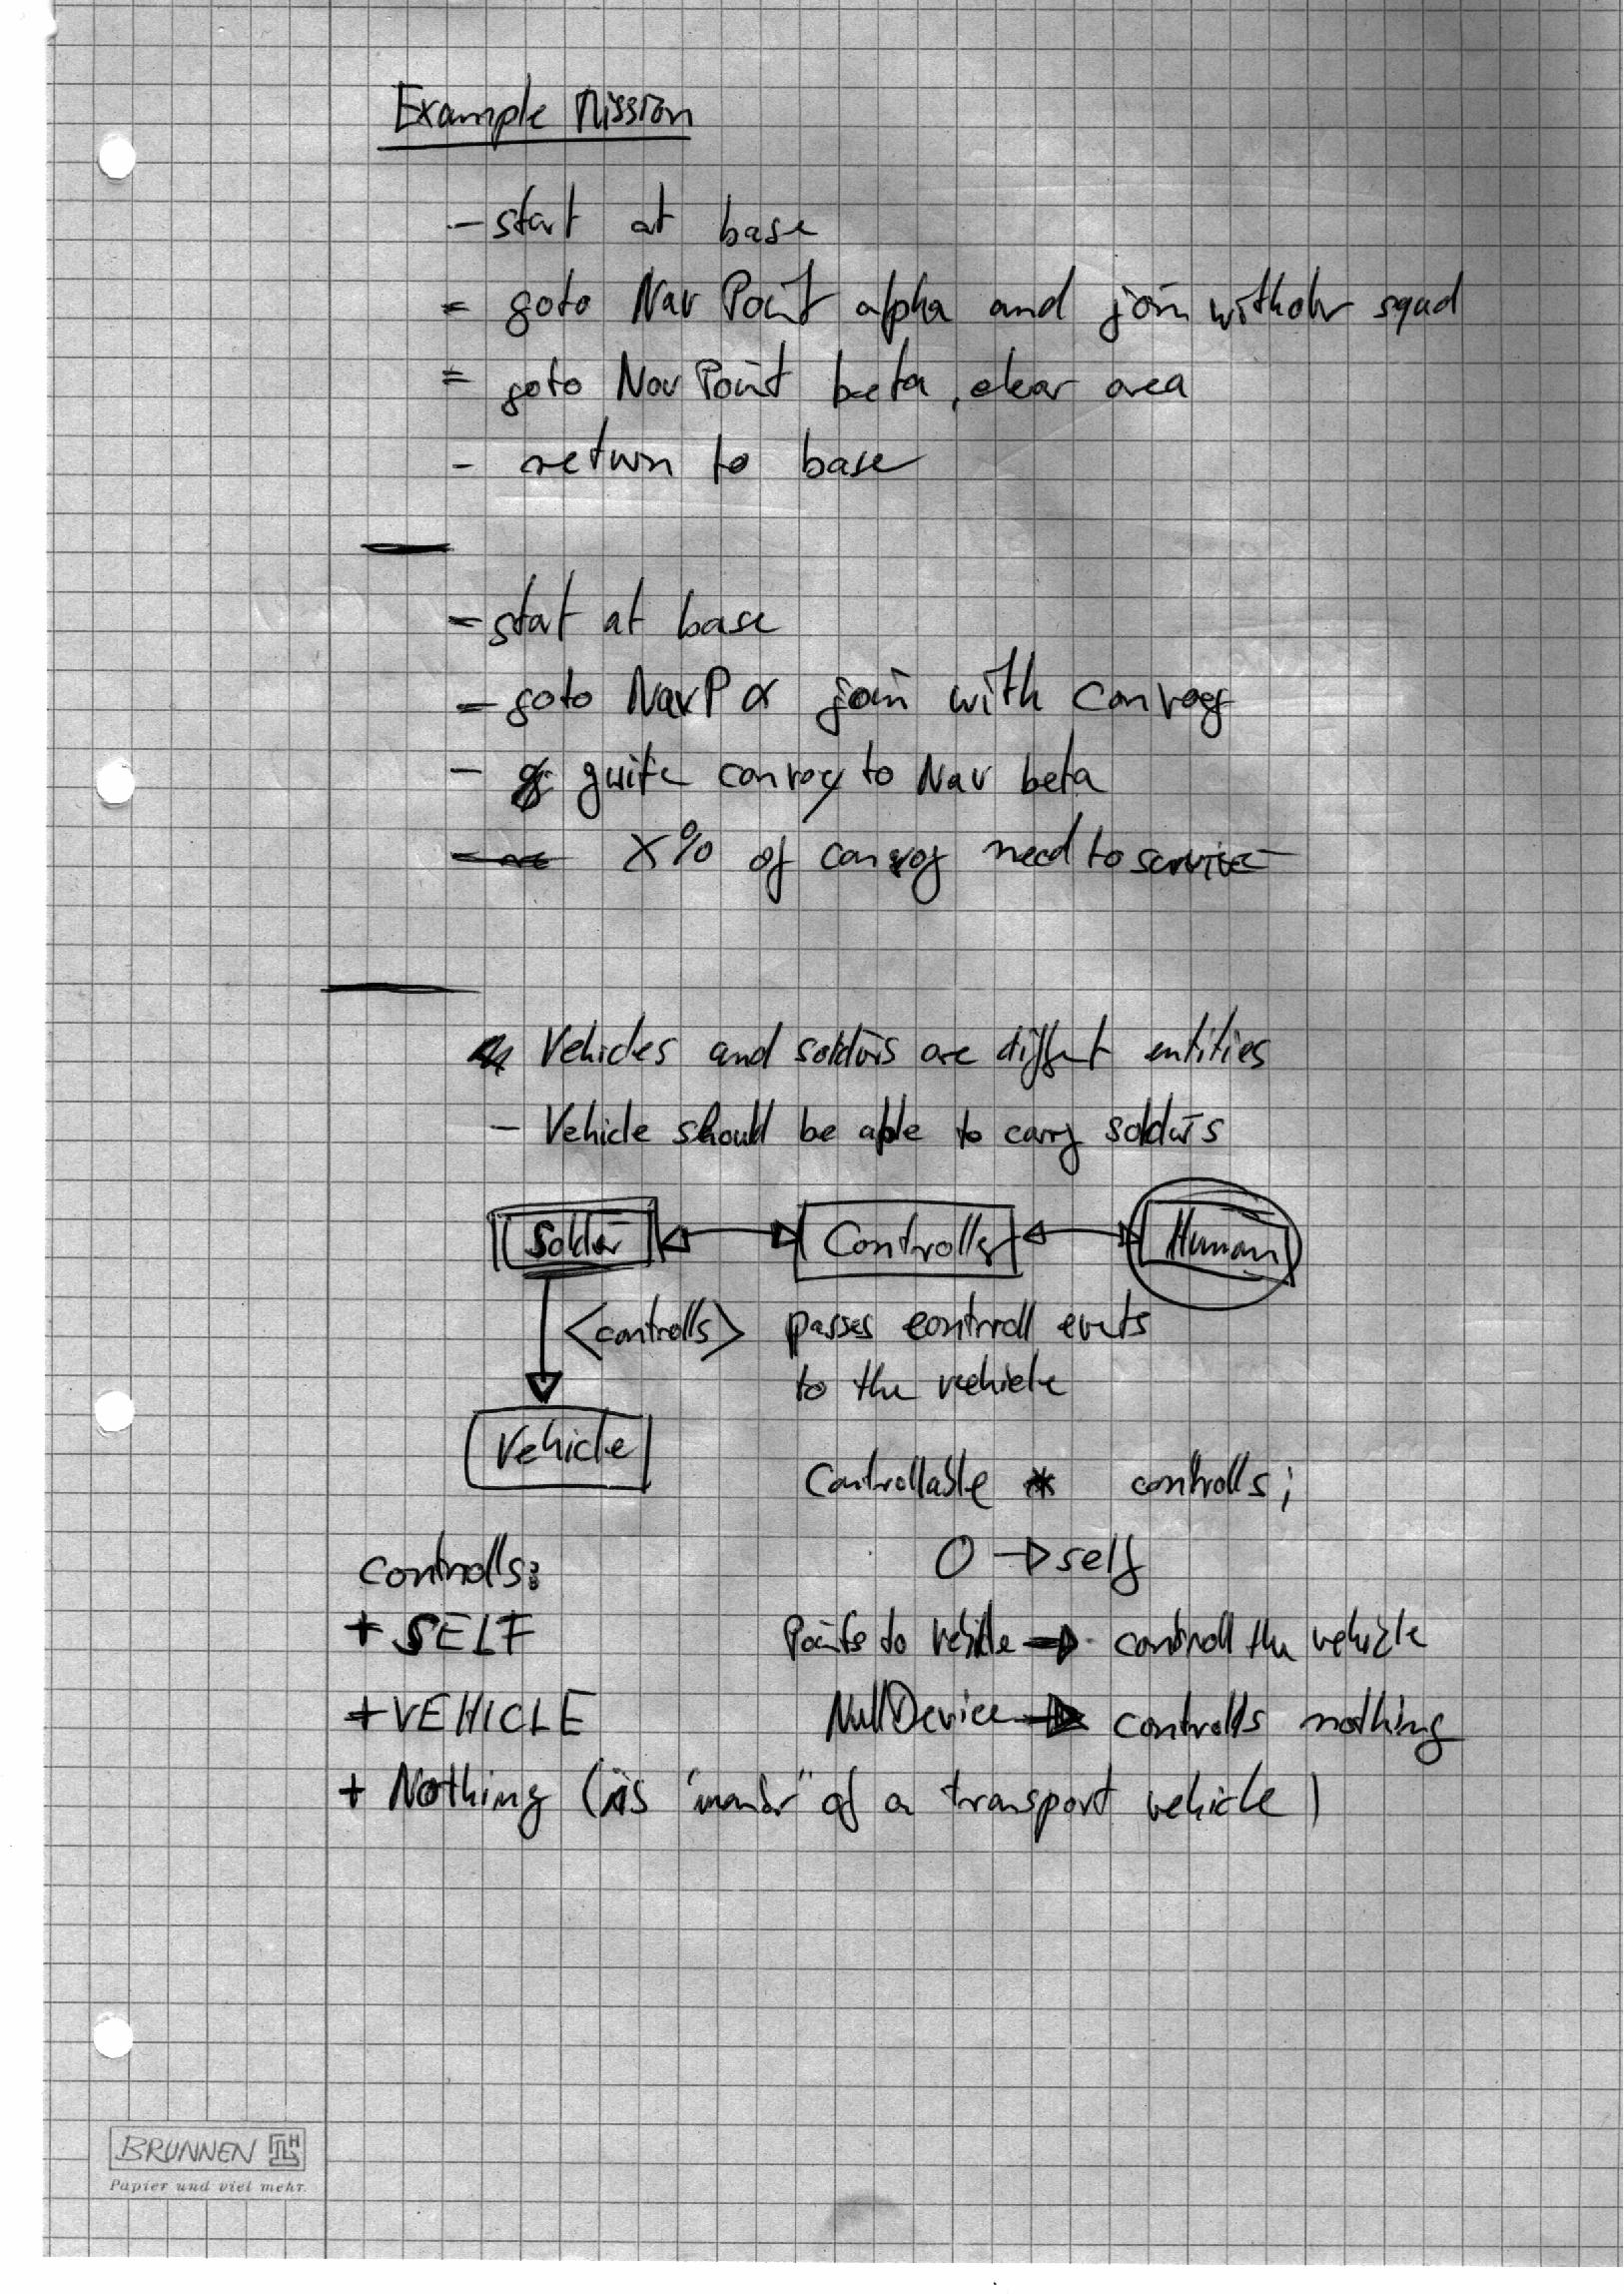 Example Mission
- start at base
- goto Nav Point alpha and join with squad
- goto Nav Point beta, clear area
- return to base
- start at base
- goto NavP α join with convoy
- guite convoy to Nav beta
X% of convoy need to
Vehicles and soldiers are different entities
- Vehicle should be able to carry soldiers
Soldier Controller Human
<controlls> passes controll events
to the vehicle
Vehicle
Controllable * controlls;
0 → self
controlls:
+ SELF
Points to vehicle → controll the vehicle
+ VEHICLE
NullDevice → controlls nothing
+ Nothing (as of a transport vehicle)
BRUNNEN
Papier und viel mehr.